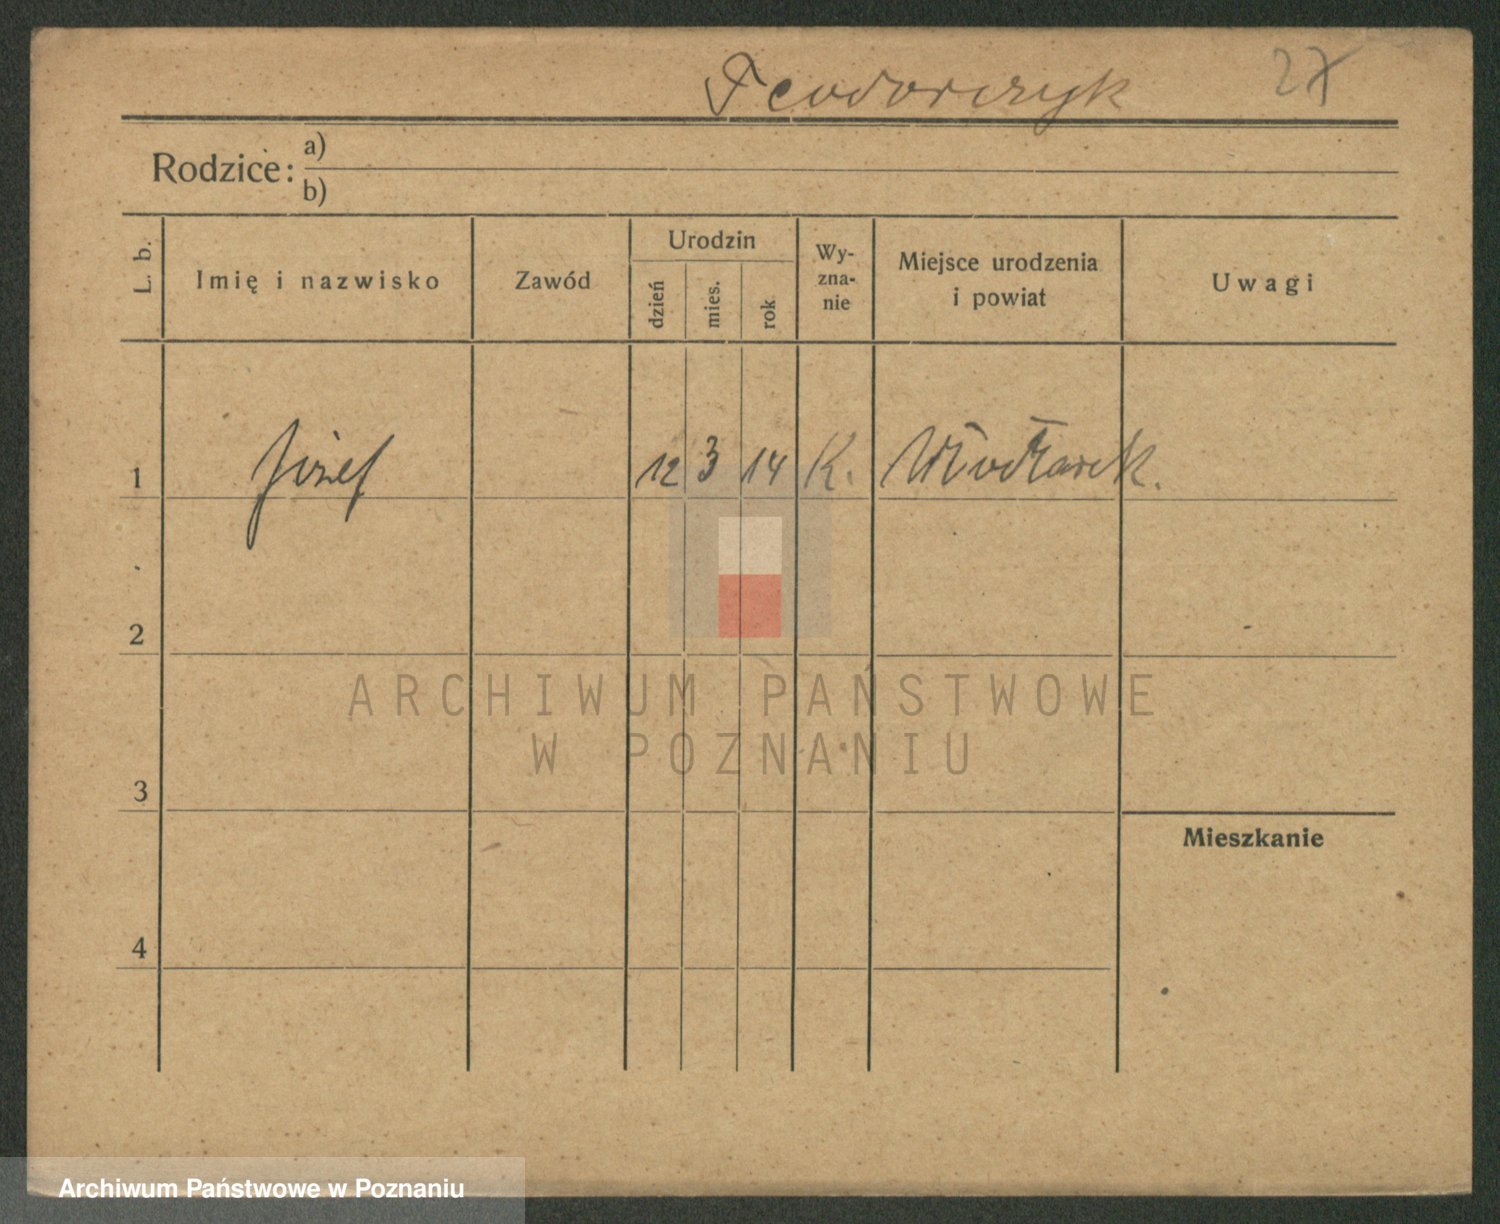 Teodorczyk 27
Rodzice: a)
b)
L. b. Imię i nazwisko Zawód Urodzin dzień mies. rok Wy-zna-nie Miejsce urodzenia i powiat Uwagi
1 Józef 12 3 14 K. Włodarek.
2
3
Mieszkanie
4
ARCHIWUM PAŃSTWOWE
W POZNANIU
Archiwum Państwowe w Poznaniu